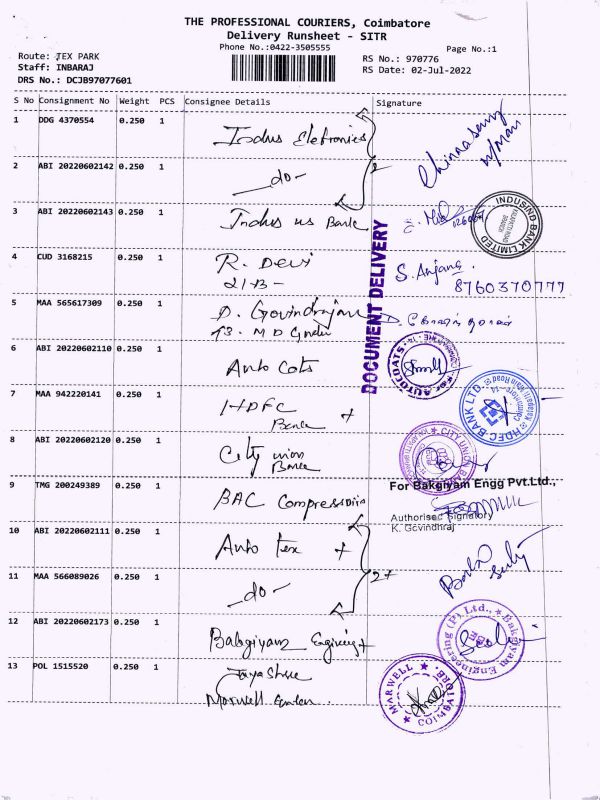 THE PROFESSIONAL COURIERS, Coimbatore
Delivery Runsheet - SITR
Phone No.:0422-3505555
Page No.:1
Route: TEX PARK
Staff: INBARAJ
DRS No.: DCJB97077601
RS No.: 970776
RS Date: 02-Jul-2022
S No Consignment No Weight PCS Consignee Details Signature
1 DDG 4370554 0.250 1 Indus Eletronics
2 ABI 20220602142 0.250 1 -do- 2
3 ABI 20220602143 0.250 1 Indus us Bank
INDUSIND BANK LIMITED
4 CUD 3168215 0.250 1 R. Devi
21-B- S. Anjana
8760370777
5 MAA 565617309 0.250 1 D. Govindrajan
93. M D
DOCUMENT DELIVERY
6 ABI 20220602110 0.250 1 Auto Cots
For AUTOCOATS
7 MAA 942220141 0.250 1 HDFC
Bank +
HDFC BANK LTD.
8 ABI 20220602120 0.250 1 City union
Bank
CITY UNION BANK
9 TMG 200249389 0.250 1 BAC Compressors
For Bakgiyam Engg Pvt.Ltd.,
Authorised Signatory
K. Govindhraj
10 ABI 20220602111 0.250 1 Auto tex +
11 MAA 566089026 0.250 1 -do- 2+
12 ABI 20220602173 0.250 1 Bakgiyam Enginieg +
Bakgiyam Engineering (P) Ltd.,
CBE
13 POL 1515520 0.250 1 Jayashree
Marwell
MARWELL
COIMBATORE